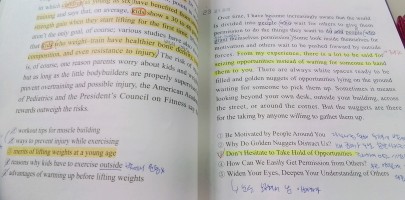 in which
training and says that, on average, kids show a 30 to
strength gain when they start lifting for the first
isn't the only goal, of course; various studies have also
that kids who weight-train have healthier bone density,
composition, and even resistance to injury. The risk of
is, of course, one reason parents worry about kids and
but as long as the little bodybuilders are properly supervised,
prevent overtraining and possible injury, the American
of Pediatrics and the President's Council on Fitness say
rewards outweigh the risks.
① workout tips for muscle building
② ways to prevent injury while exercising
③ merits of lifting weights at a young age
④ reasons why kids have to exercise outside
⑤ advantages of warming up before lifting weights
Over time, I have become increasingly aware that the world
is divided into people who wait for others to give them
permission to do the things they want to do and people who
grant themselves permission. Some look inside themselves for
motivation and others wait to be pushed forward by outside
forces. From my experience, there is a lot to be said for
seizing opportunities instead of waiting for someone to hand
them to you. There are always white spaces ready to be
filled and golden nuggets of opportunities lying on the ground
waiting for someone to pick them up. Sometimes it means
looking beyond your own desk, outside your building, across
the street, or around the corner. But the nuggets are there
for the taking by anyone willing to gather them up.
① Be Motivated by People Around You
② Why Do Golden Nuggets Distract Us?
③ Don't Hesitate to Take Hold of Opportunities
④ How Can We Easily Get Permission from Others?
⑤ Widen Your Eyes, Deepen Your Understanding of Others